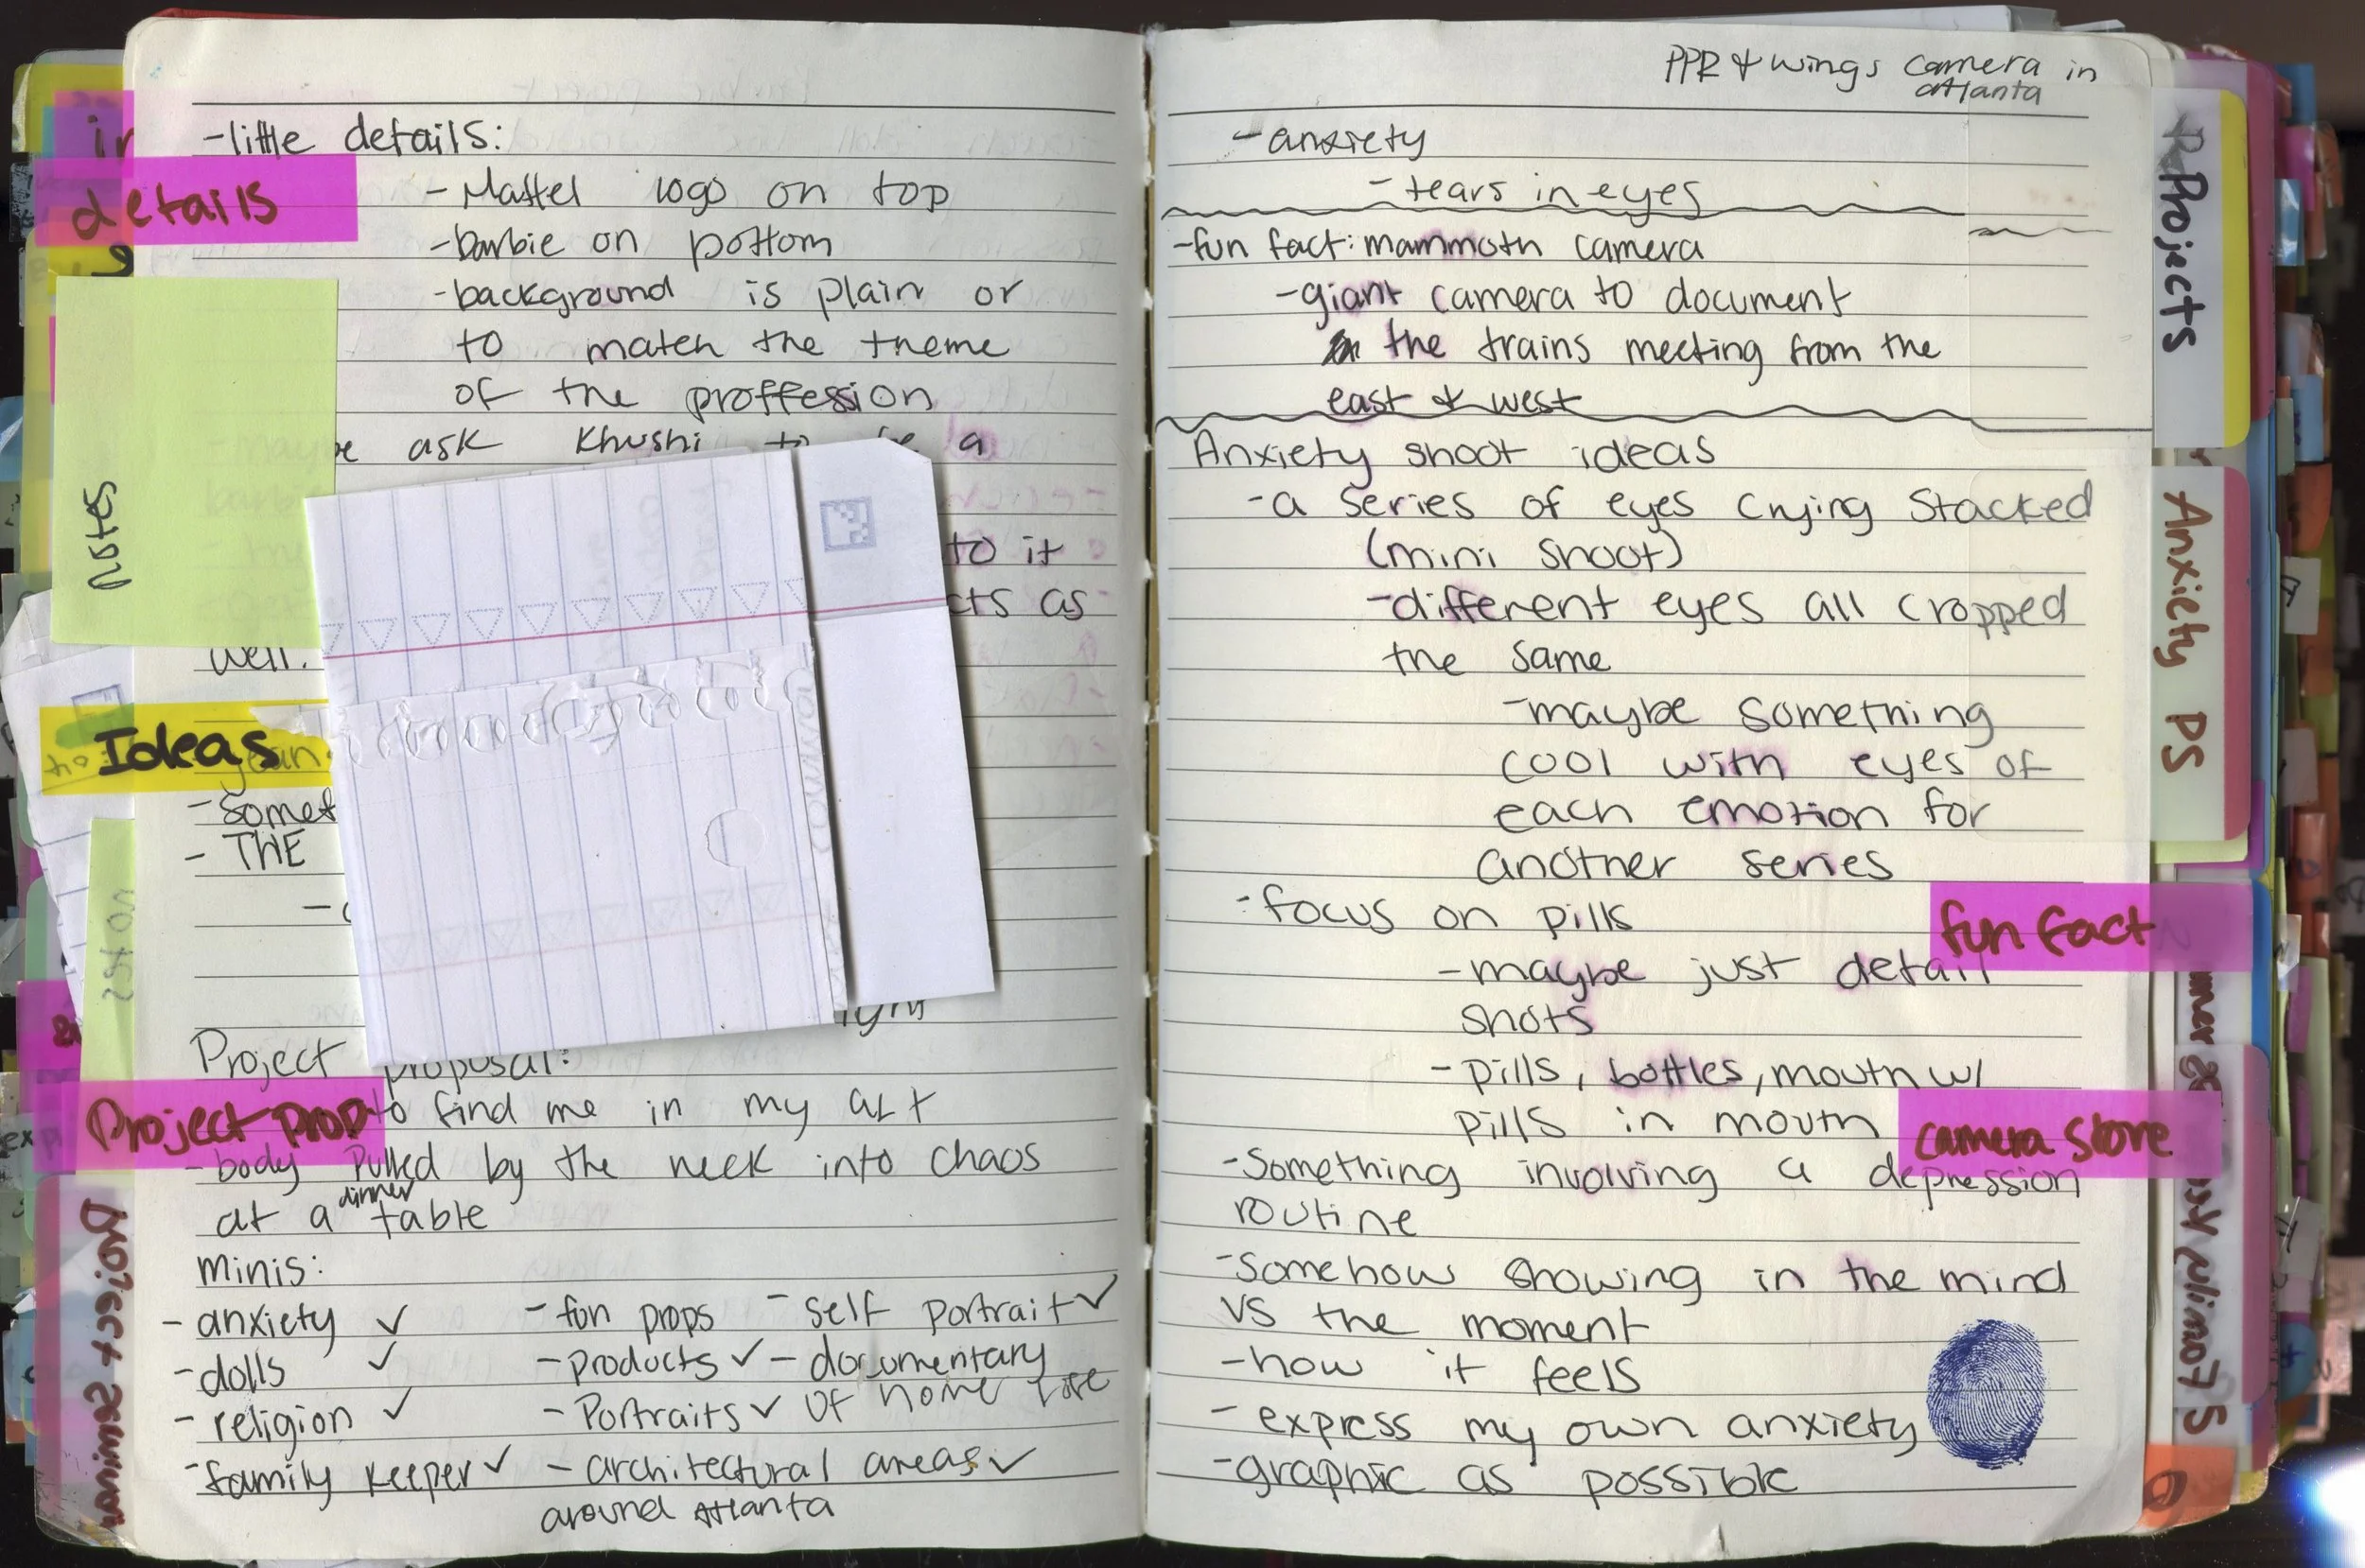 -little details:
details
-Mattel logo on top
-barbie on bottom
-background is plain or
to match the theme
of the proffession
ask Khushi to be a
notes
to it
as
well.
Ideas
- THE
Project proposal:
Project prop
to find me in my art
-body pulled by the neck into chaos
at a dinner table
minis:
- anxiety ✓
- dolls ✓
- religion ✓
- family keeper ✓
- fun props
- products ✓
- Portraits ✓
- architectural areas ✓
around Atlanta
- self portrait ✓
- documentary
of home life
Project Seminar
PPR & wings camera in
Atlanta
- anxiety
- tears in eyes
-fun fact: mammoth camera
-giant camera to document
the trains meeting from the
east & west
Anxiety shoot ideas
-a series of eyes crying stacked
(mini shoot)
-different eyes all cropped
the same
-maybe something
cool with eyes of
each emotion for
another series
-focus on pills
-maybe just detail
shots
- pills, bottles, mouth w/
pills in mouth
-Something involving a depression
routine
-somehow showing in the mind
vs the moment
-how it feels
- express my own anxiety
-graphic as possible
Projects
Anxiety PS
fun fact
camera store